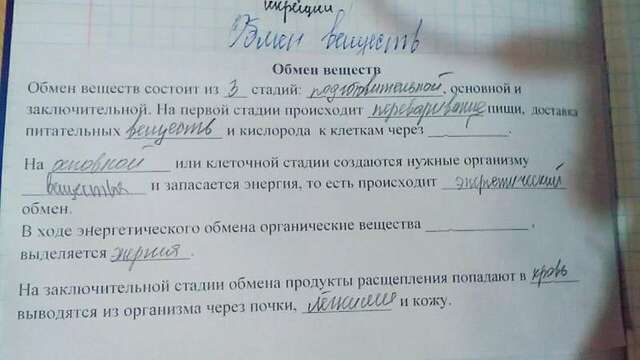 Обмен веществ
Обмен веществ
Обмен веществ состоит из 3 стадий: подготовительной, основной и
заключительной. На первой стадии происходит переваривание пищи, доставка
питательных веществ и кислорода к клеткам через ________.
На основной или клеточной стадии создаются нужные организму
вещества и запасается энергия, то есть происходит энергетический
обмен.
В ходе энергетического обмена органические вещества ____________,
выделяется энергия.
На заключительной стадии обмена продукты расщепления попадают в кровь
выводятся из организма через почки, лёгкие и кожу.